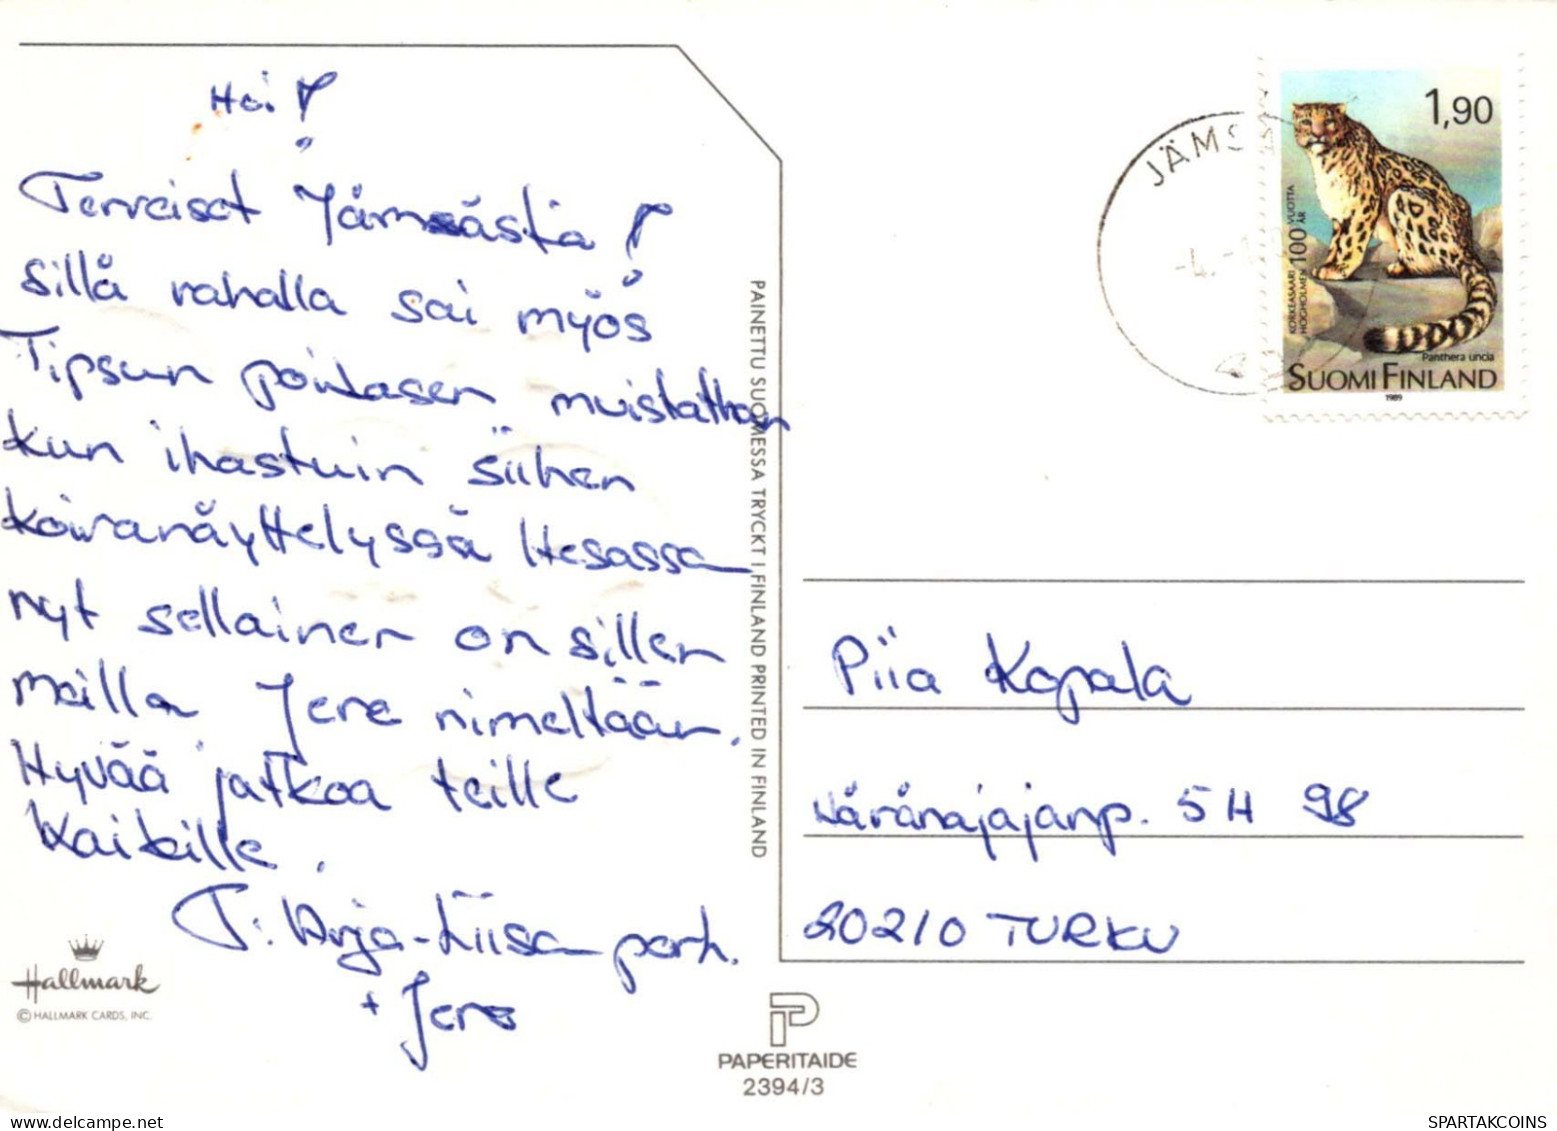 Hei!
Terveiset Jämsästä!
Sillä rahalla sai myös
Tipsun pointasen muistathan
kun ihastuin siihen
koiranäyttelyssä Hesassa
nyt sellainen on sillen
meilla Jere nimeltään.
Hyvää jatkoa teille
kaikille.
T: Arja-Liisan perh.
+ Jere
Hallmark
© HALLMARK CARDS, INC.
PAINETTU SUOMESSA TRYCKT I FINLAND PRINTED IN FINLAND
PAPERITAIDE
2394/3
JÄMS
-4.-
1,90
KORKEASAARI 100 VUOTTA
HÖGHOLMEN ÅR
Panthera uncia
SUOMI FINLAND
1989
Piia Kopala
5 H 98
20210 TURKU
SPARTAKCOINS